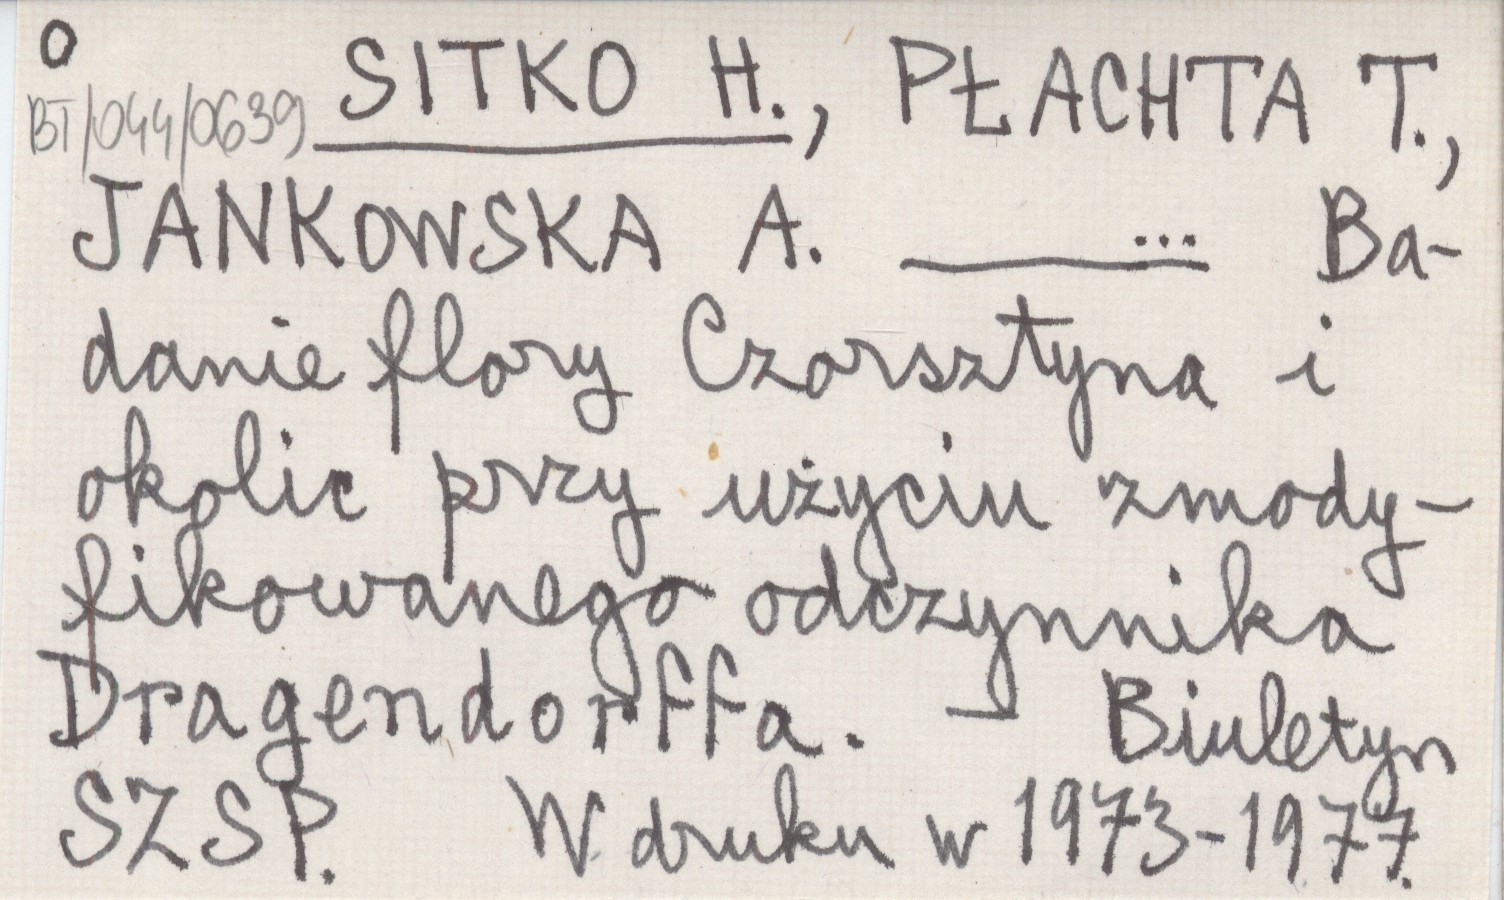 O
BT/044/0639
SITKO H., PŁACHTA T.,
JANKOWSKA A. ______... Ba-
danie flory Czorsztyna i
okolic przy użyciu zmody-
fikowanego odczynnika
Dragendorffa. – Biuletyn
SZSP. W druku w 1973-1977.